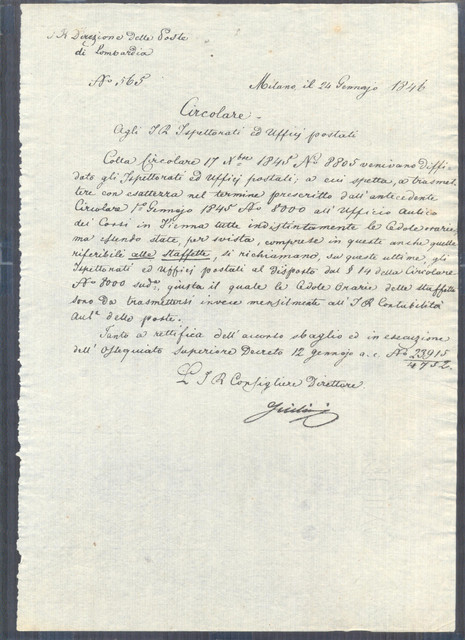 I R Direzione delle Poste
di Lombardia
No. 565
Milano, il 24 Gennajo 1846
Circolare
Agli I R Ispettorati ed Uffizj postali
Colla Circolare 17 Nbre 1845 No 8805 venivano diffi-
dati gli Ispettorati ed Uffizj postali, a cui spetta, a trasmet-
tere con esattezza nel termine prescritto dall'antecedente
Circolare 1º Gennajo 1845 No 8000 all'Ufficio Aulico
dei Corsi in Vienna tutte indistintamente le Cedole orarie,
ma essendo state, per svista, comprese in queste anche quelle
riferibili alle Staffette, si richiamano, su queste ultime, gli
Ispettorati ed Uffizj postali al disposto dal § 14 della Circolare
No 8000 sudª, giusta il quale le Cedole Orarie delle Staffette
sono da trasmettersi invece mensilmente all'I R Contabilità
Aulª delle poste.
Tanto a rettifica dell'accorso sbaglio ed in esecuzione
dell'Ossequiato Superiore Decreto 12 Gennajo a. c. No 23915
4752.
L' I R Consigliere Direttore